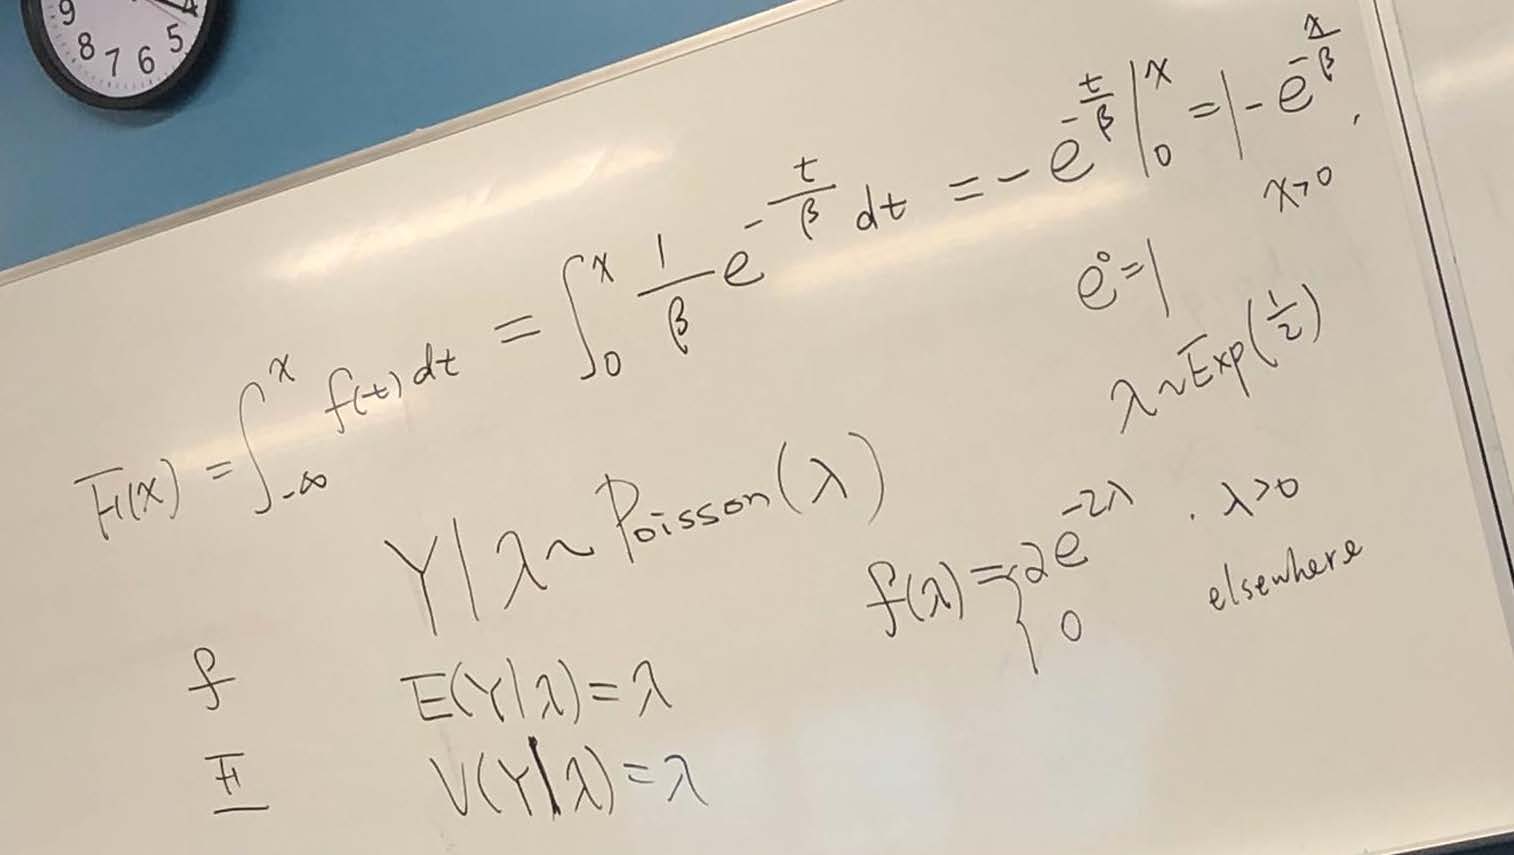 9 8 7 6 5 4
F(x) = ∫_{-∞}^{x} f(t) dt = ∫_0^x 1/β e^{-t/β} dt = - e^{-t/β} |_0^x = 1 - e^{-x/β},
x>0
e^0 = 1
λ ~ Exp(1/2)
Y|λ ~ Poisson(λ)
f(λ) = { 2e^{-2λ} . λ>0
0 elsewhere
f E(Y|λ) = λ
F V(Y|λ) = λ